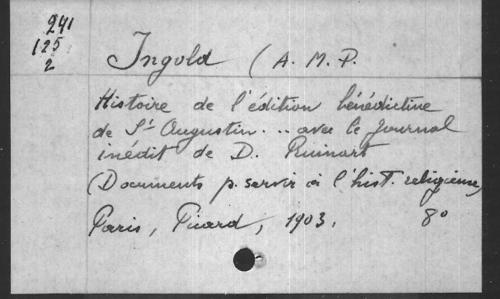 241
125
2
Ingold (A. M. P.
Histoire de l'édition bénédictine
de St Augustin ... avec le Journal
inédit de D. Ruinart
(Documents p. servir à l'hist. religieuse)
Paris, Picard, 1903. 8o